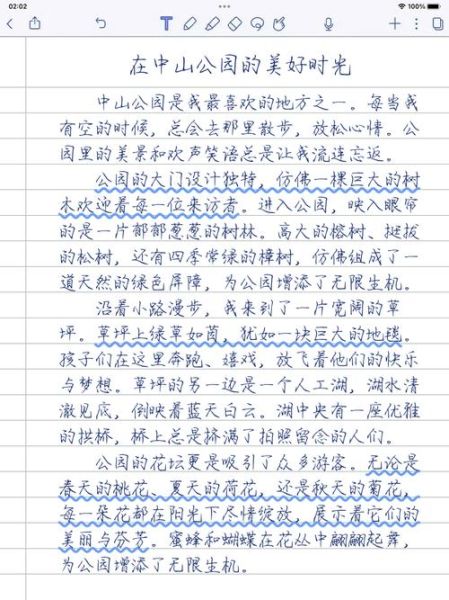 02:02
100%
在中山公园的美好时光
中山公园是我最喜欢的地方之一。每当我
有空的时候，总会去那里散步，放松心情。公
园里的美景和欢声笑语总是让我流连忘返。
公园的大门设计独特，仿佛一棵巨大的树
木欢迎着每一位来访者。进入公园，映入眼帘
的是一片郁郁葱葱的树林。高大的榕树、挺拔
的松树，还有四季常绿的樟树，仿佛组成了一
道天然的绿色屏障，为公园增添了无限生机。
沿着小路漫步，我来到了一片宽阔的草
坪。草坪上绿草如茵，犹如一块巨大的地毯。
孩子们在这里奔跑、嬉戏，放飞着他们的快乐
与梦想。草坪的另一边是一个人工湖，湖水清
澈见底，倒映着蓝天白云。湖中央有一座优雅
的拱桥，桥上总是挤满了拍照留念的人们。
公园的花坛更是吸引了众多游客。无论是
春天的桃花、夏天的荷花，还是秋天的菊花，
每一朵花都在阳光下尽情绽放，展示着它们的
美丽与芬芳。蜜蜂和蝴蝶在花丛中翩翩起舞，
为公园增添了无限生机。